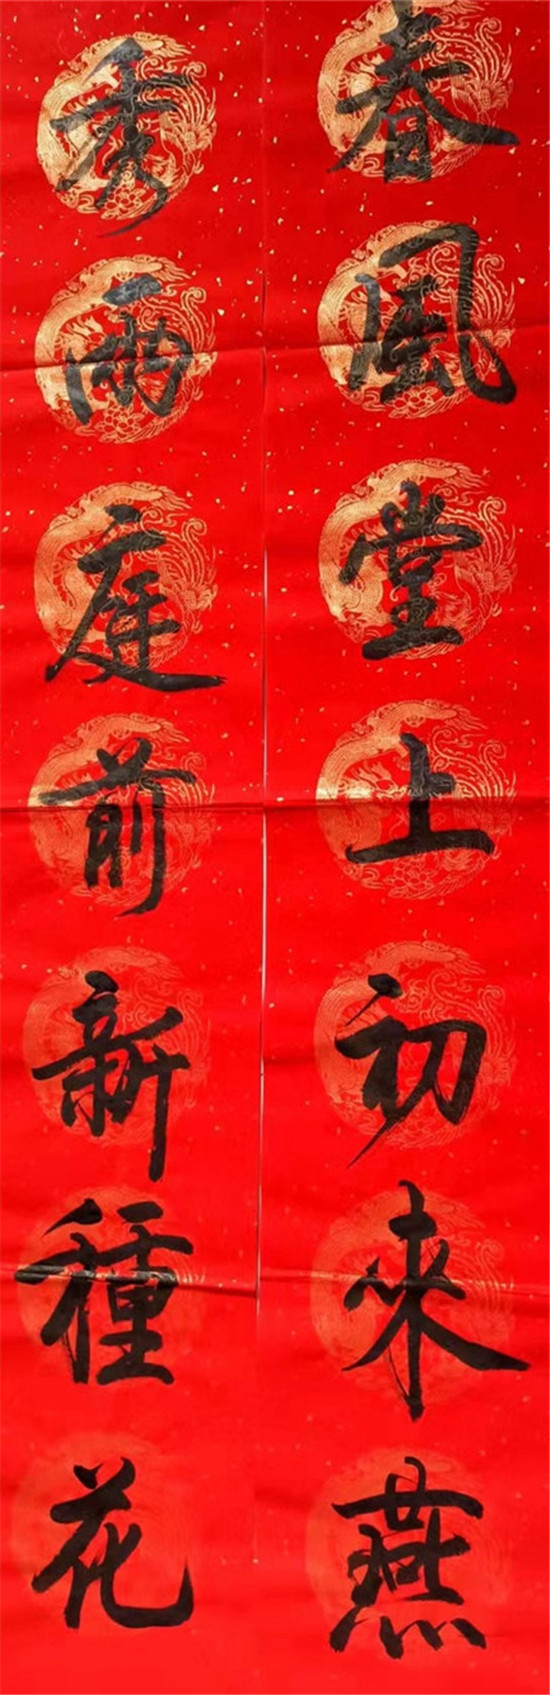 春風堂上初來燕
秀雨庭前新種花